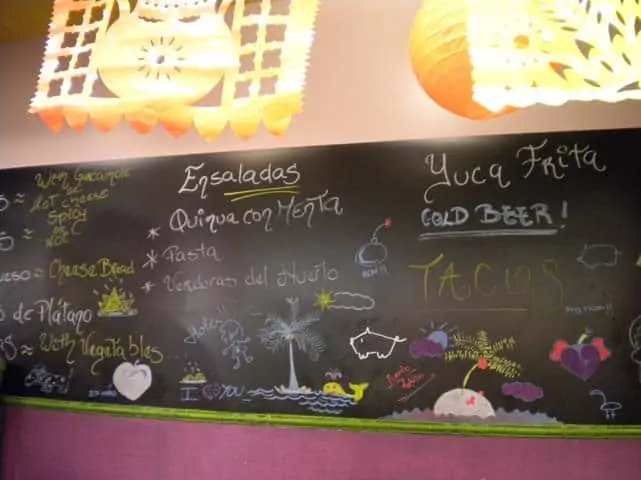 With Guacamole
or
Hot cheese
Spicy
or
Not
Cheese Bread
o de Plátano
With Vegetables
Ensaladas
* Quinua con Menta
* Pasta
* Verduras del Huerto
Hola
I YOU
Yuca Frita
COLD BEER!
TACOS